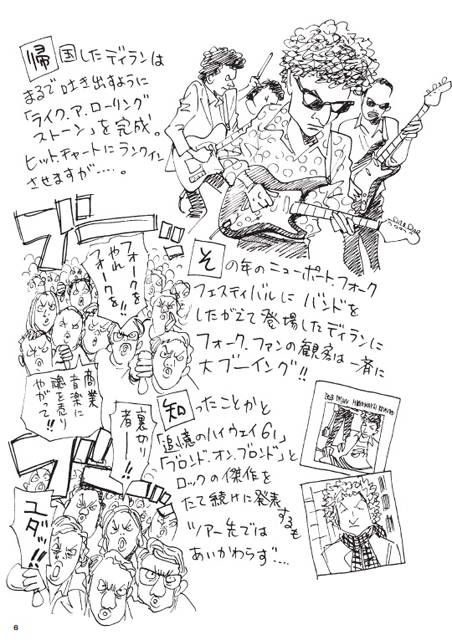 帰国したディランは
まるで吐き出すように
「ライク.ア.ローリング
ストーン」を完成。
ヒット.チャートにランクイン
させますが……。
ブーッ
フォークを
やれ
フォークを!!
その年のニューポート.フォーク
フェスティバルに バンドを
したがえて登場したディランに
フォーク.ファンの観客は一斉に
大ブーイング!!
商業
音楽に
魂を売り
やがって!!
裏切り
者ー!!
ブーッ
ユダッ!!
知ったことかと
「追憶のハイウェイ61」
「ブロンド.オン.ブロンド」と
ロックの傑作を
たて続けに発表
するも
ツアー先では
あいかわらず…
BOB DYLAN HIGHWAY 61 REVISITED
6